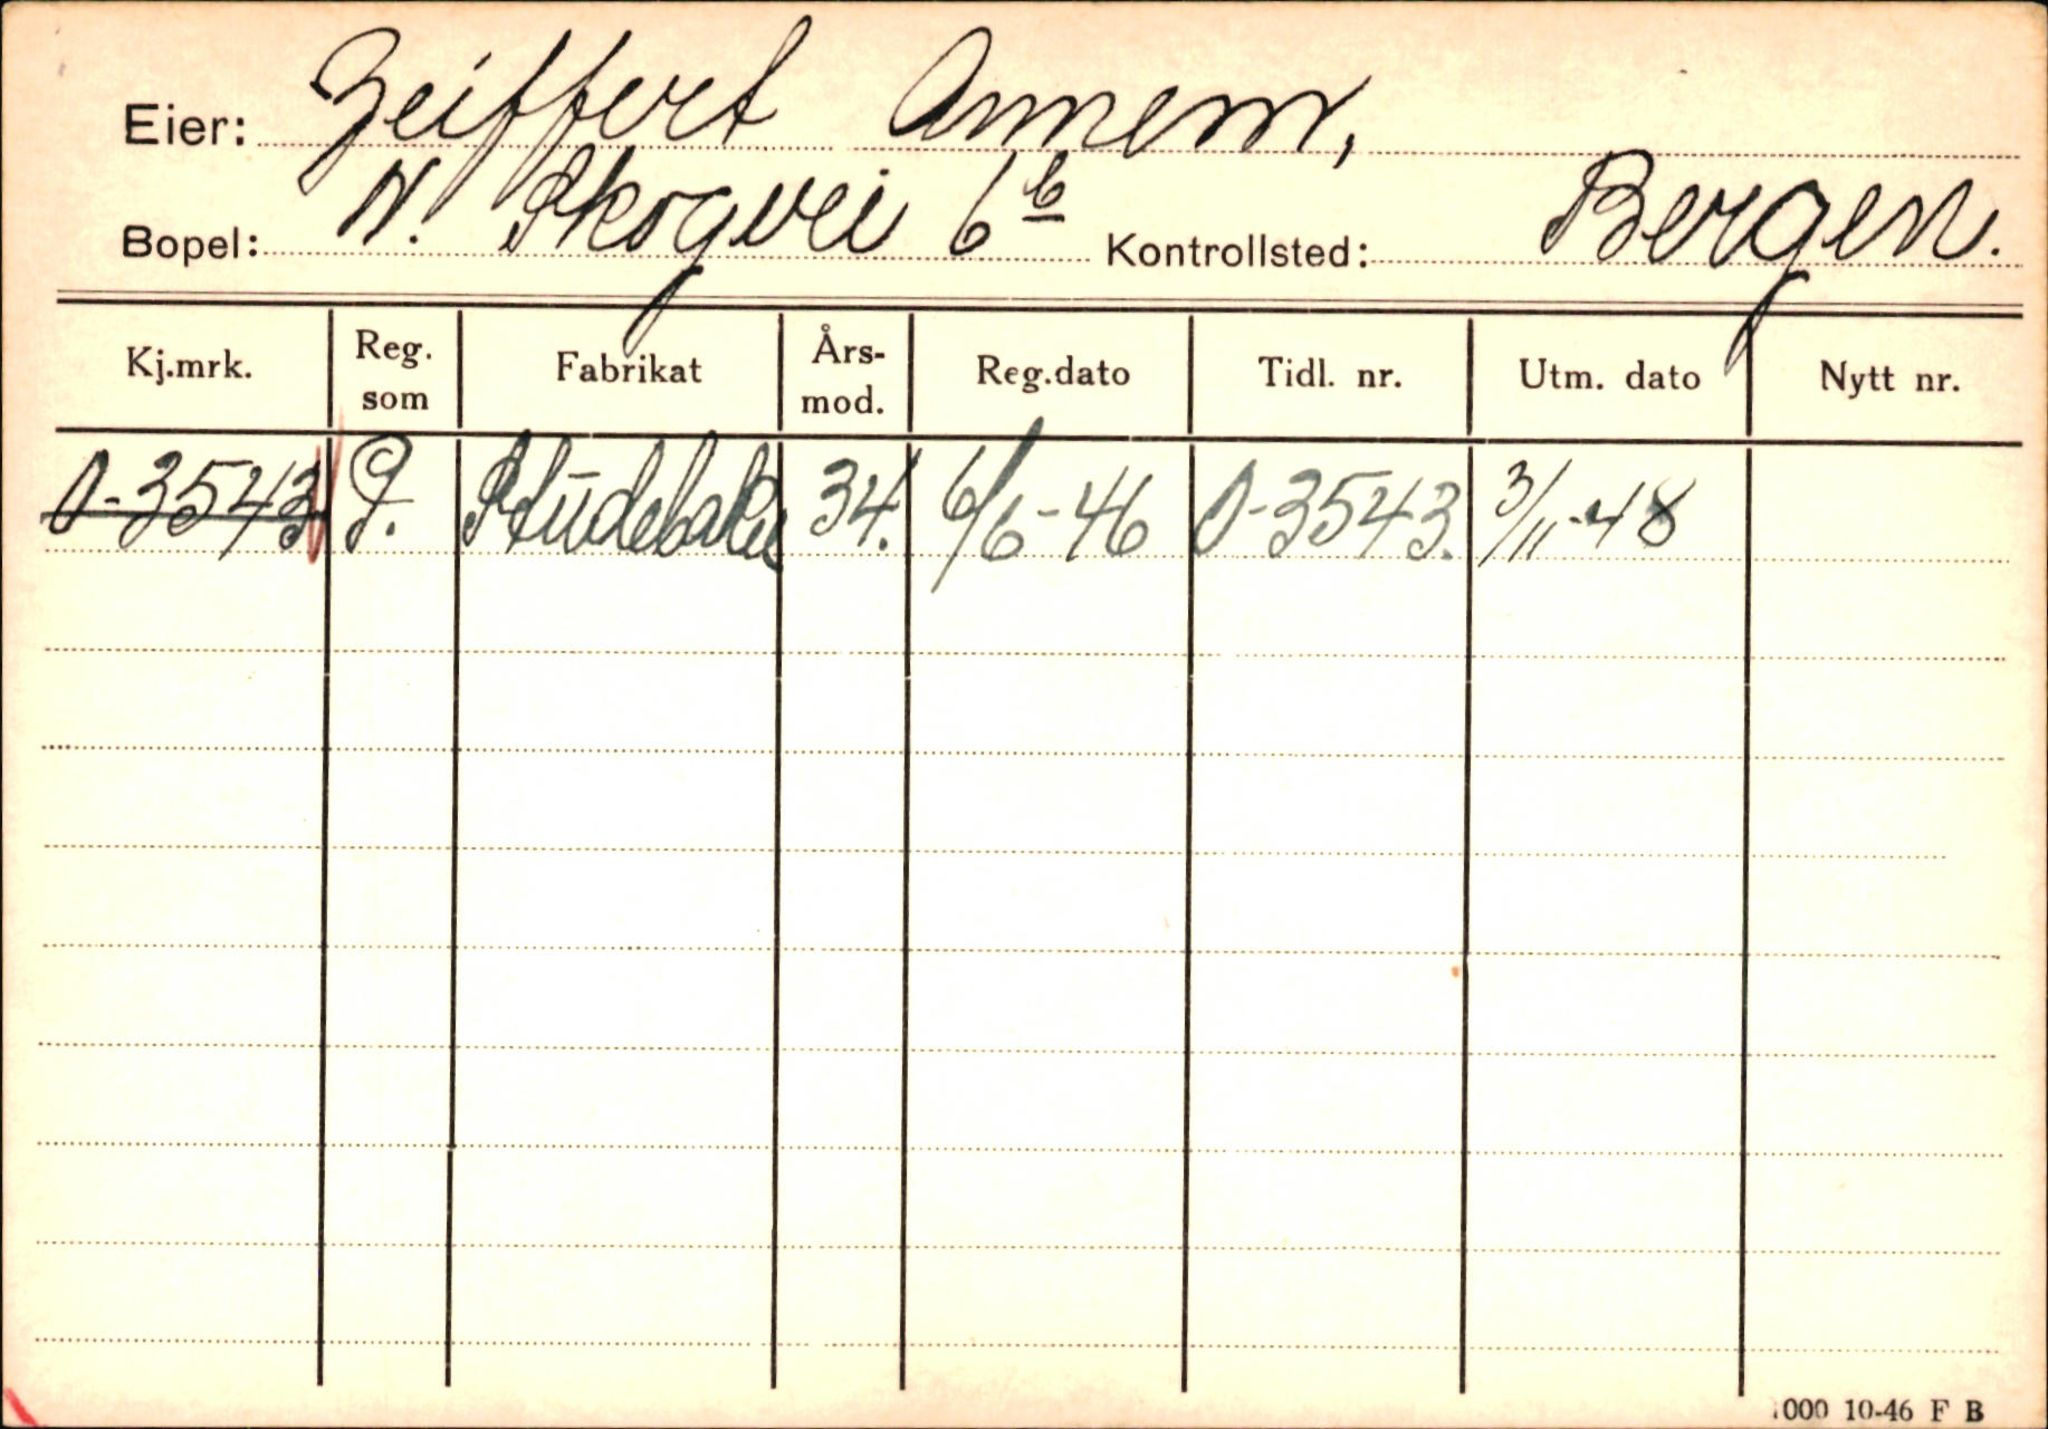 Eier: Zeiffert Annem,
Bopel: N. Skogvei 6b Kontrollsted: Bergen.
Kj.mrk. Reg. som Fabrikat Års-mod. Reg.dato Tidl. nr. Utm. dato Nytt nr.
O-3543 P. Studebaker 34. 6/6-46 O-3543. 3/11-48
1000 10-46 F B